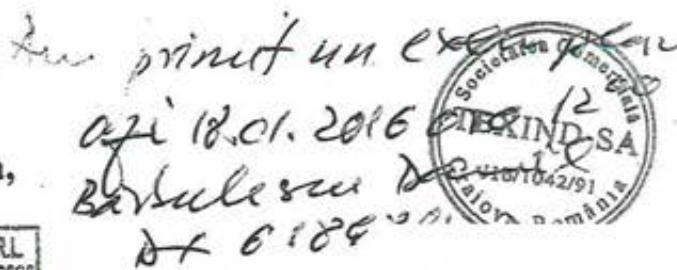 Am primit un exemplar
azi 18.01.2016 ora 12
Bărbulescu
DX 6184
Societatea Comercială
TEXIND SA
J16/1042/91
Craiova România
RL